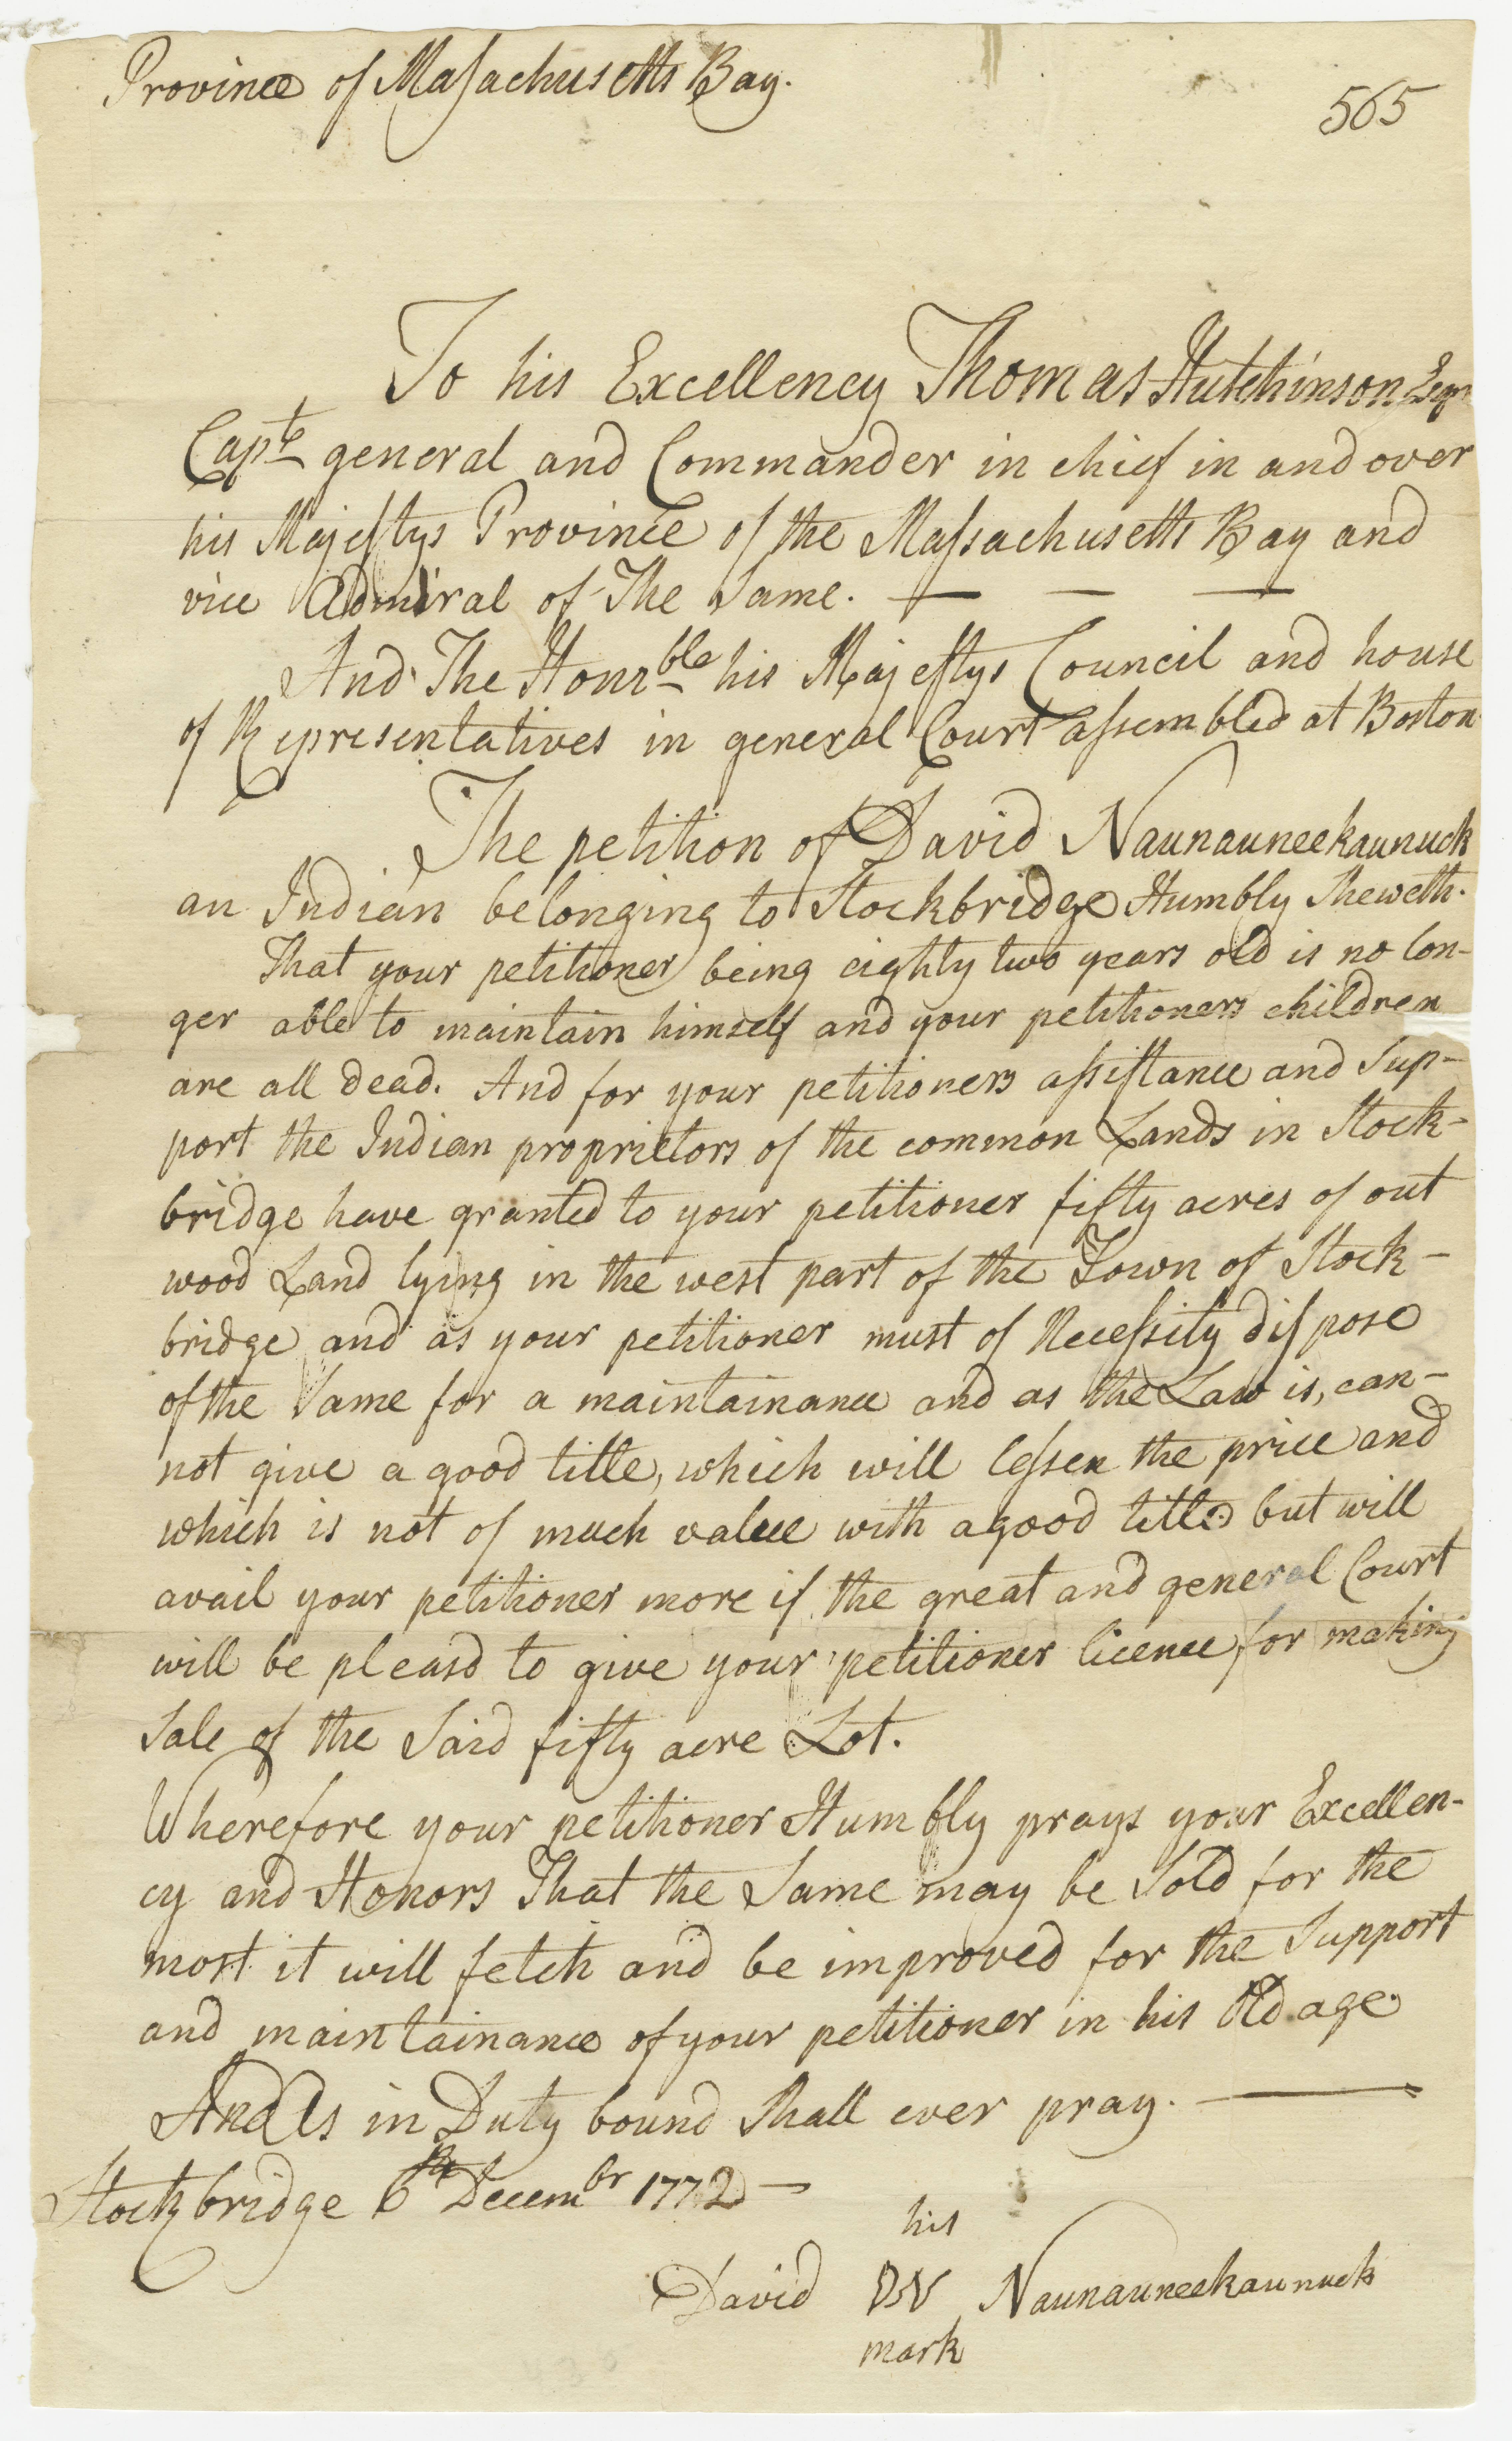 Province of Massachusetts Bay.
565
To his Excellency Thomas Hutchinson Esqr
Capt general and Commander in chief in and over
his Majestys Province of the Massachusetts Bay and
vice Admiral of The Same. — — —
And The Honrble his Majestys Council and house
of Representatives in general Court assembled at Boston
The petition of David Naunauneekaunuck
an Indian belonging to Stockbridge Humbly Sheweth.
That your petitioner being eighty two years old is no lon-
ger able to maintain himself and your petitioners children
are all dead. And for your petitioners assistance and Sup-
port the Indian proprietors of the common Lands in Stock-
bridge have granted to your petitioner fifty acres of out
wood Land lying in the west part of the Town of Stock-
bridge and as your petitioner must of Necessity dispose
of the Same for a maintainance and as the Law is, can-
not give a good title, which will lessen the price and
which is not of much value with a good title but will
avail your petitioner more if the great and general Court
will be pleasd to give your petitioner licence for making
Sale of the Said fifty acre Lot.
Wherefore your petitioner Humbly prays your Excellen-
cy and Honors That the Same may be Sold for the
most it will fetch and be improved for the Support
and maintainance of your petitioner in his Old age.
And As in Duty bound Shall ever pray. —
Stockbridge 6th Decembr 1772 —
his
David DN Naunauneekaunuck
mark